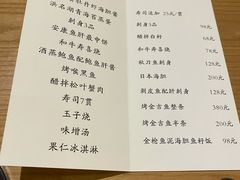 牡丹虾海胆酱
浜名湖青海苔蒸蛋
刺身3品
安康鱼肝最中饼
和牛寿喜烧
酒蒸鲍鱼配鲍鱼肝酱
烤喉黑鱼
醋拌松叶蟹肉
寿司7贯
玉子烧
味增汤
果仁冰淇淋
寿司追加 25元/贯
刺身3品 98元
醋拌白籽 68元
和牛寿喜烧 78元
秋刀鱼刺身 128元
日本海胆 200元
剥皮鱼配肝刺身 128元
烤金吉鱼整条 380元
烤金吉鱼半条 200元
金枪鱼泥海胆鱼籽饭 98元